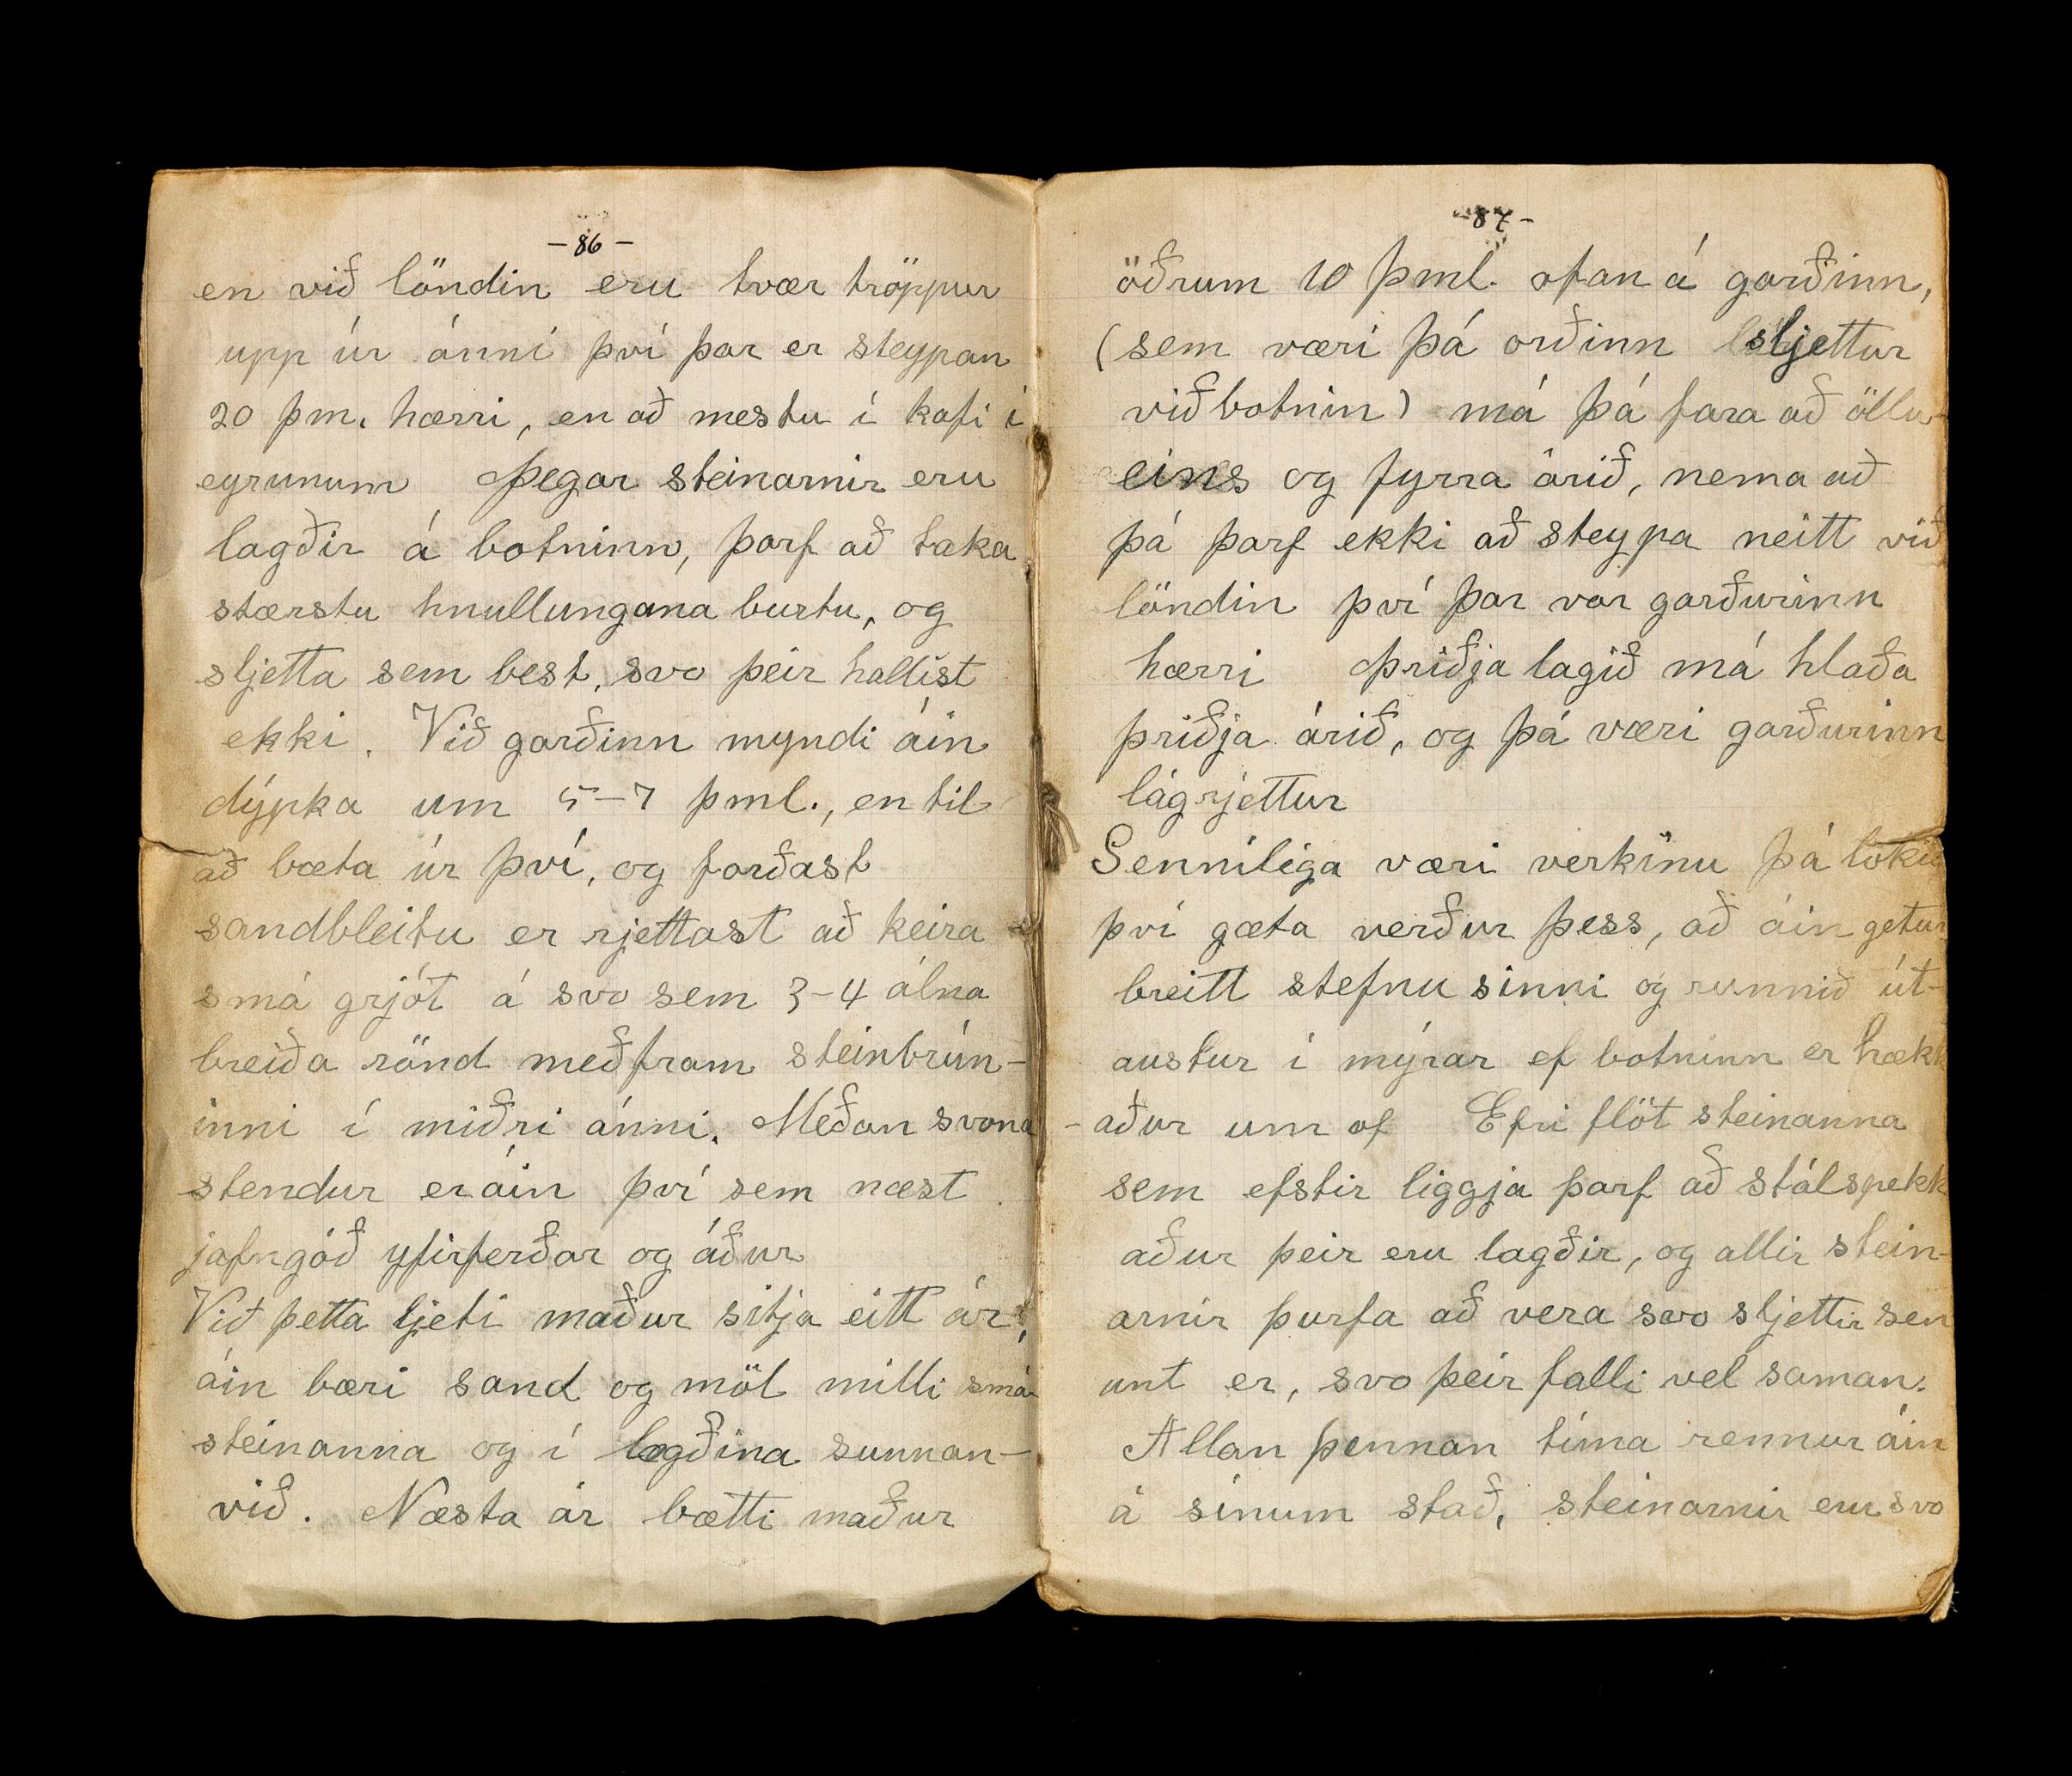 -86-
en við löndin eru tvær tröppur
upp úr ánni því þar er steypan
20 þm. hærri, en að mestu í kafi í
eyrunum Þegar steinarnir eru
lagðir á botninn, þarf að taka
stærstu hnullungana burtu, og
sljetta sem best, svo þeir hallist
ekki. Við garðinn myndi áin
dýpka um 5-7 þml., en til
að bæta úr því, og forðast
sandbleitu er rjettast að keira
smá grjót á svo sem 3-4 álna
breiða rönd meðfram steinbrún-
inni í miðri ánni. Meðan svona
stendur er áin því sem næst
jafngóð yfirferðar og áður
Við þetta ljeti maður sitja eitt ár,
áin bæri sand og möl milli smá-
steinanna og í lægðina sunnan-
við. Næsta ár bætti maður
-87-
öðrum 10 þml. ofan á garðinn,
(sem væri þá orðinn sljettur
við botnin) má þá fara að öllu
eins og fyrra árið, nema að
þá þarf ekki að steypa neitt við
löndin því þar var garðurinn
hærri Þriðja lagið má hlaða
þriðja árið, og þá væri garðurinn
lágrjettur
Senniliga væri verkinu þá lokið
því gæta verður þess, að áin getur
breitt stefnu sinni og runnið út-
austur í mýrar ef botninn er hækk
-aður um of Efri flöt steinanna
sem efstir liggja þarf að stálspekk
aður þeir eru lagðir, og allir stein-
arnir þurfa að vera svo sljettir sem
unt er, svo þeir falli vel saman.
Allan þennan tíma rennur áin
á sínum stað, steinarnir eru svo